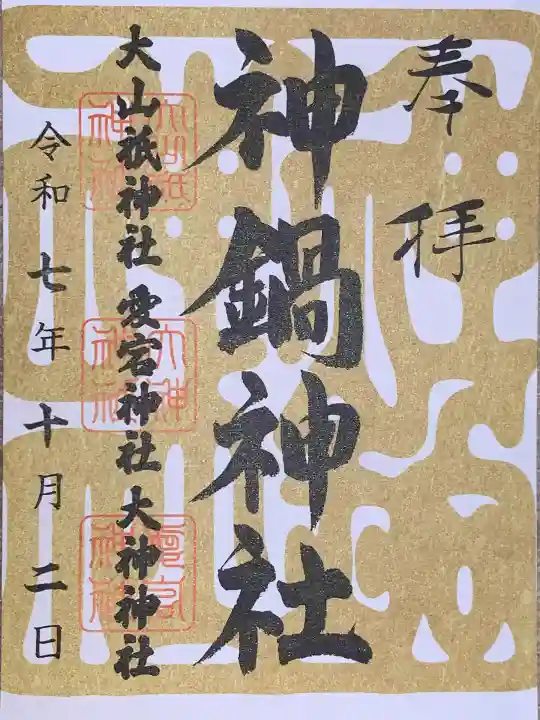 奉拝
神鍋神社
大山祇神社 愛宕神社 大神神社
令和七年十月二日
大山祇神社
大神神社
愛宕神社